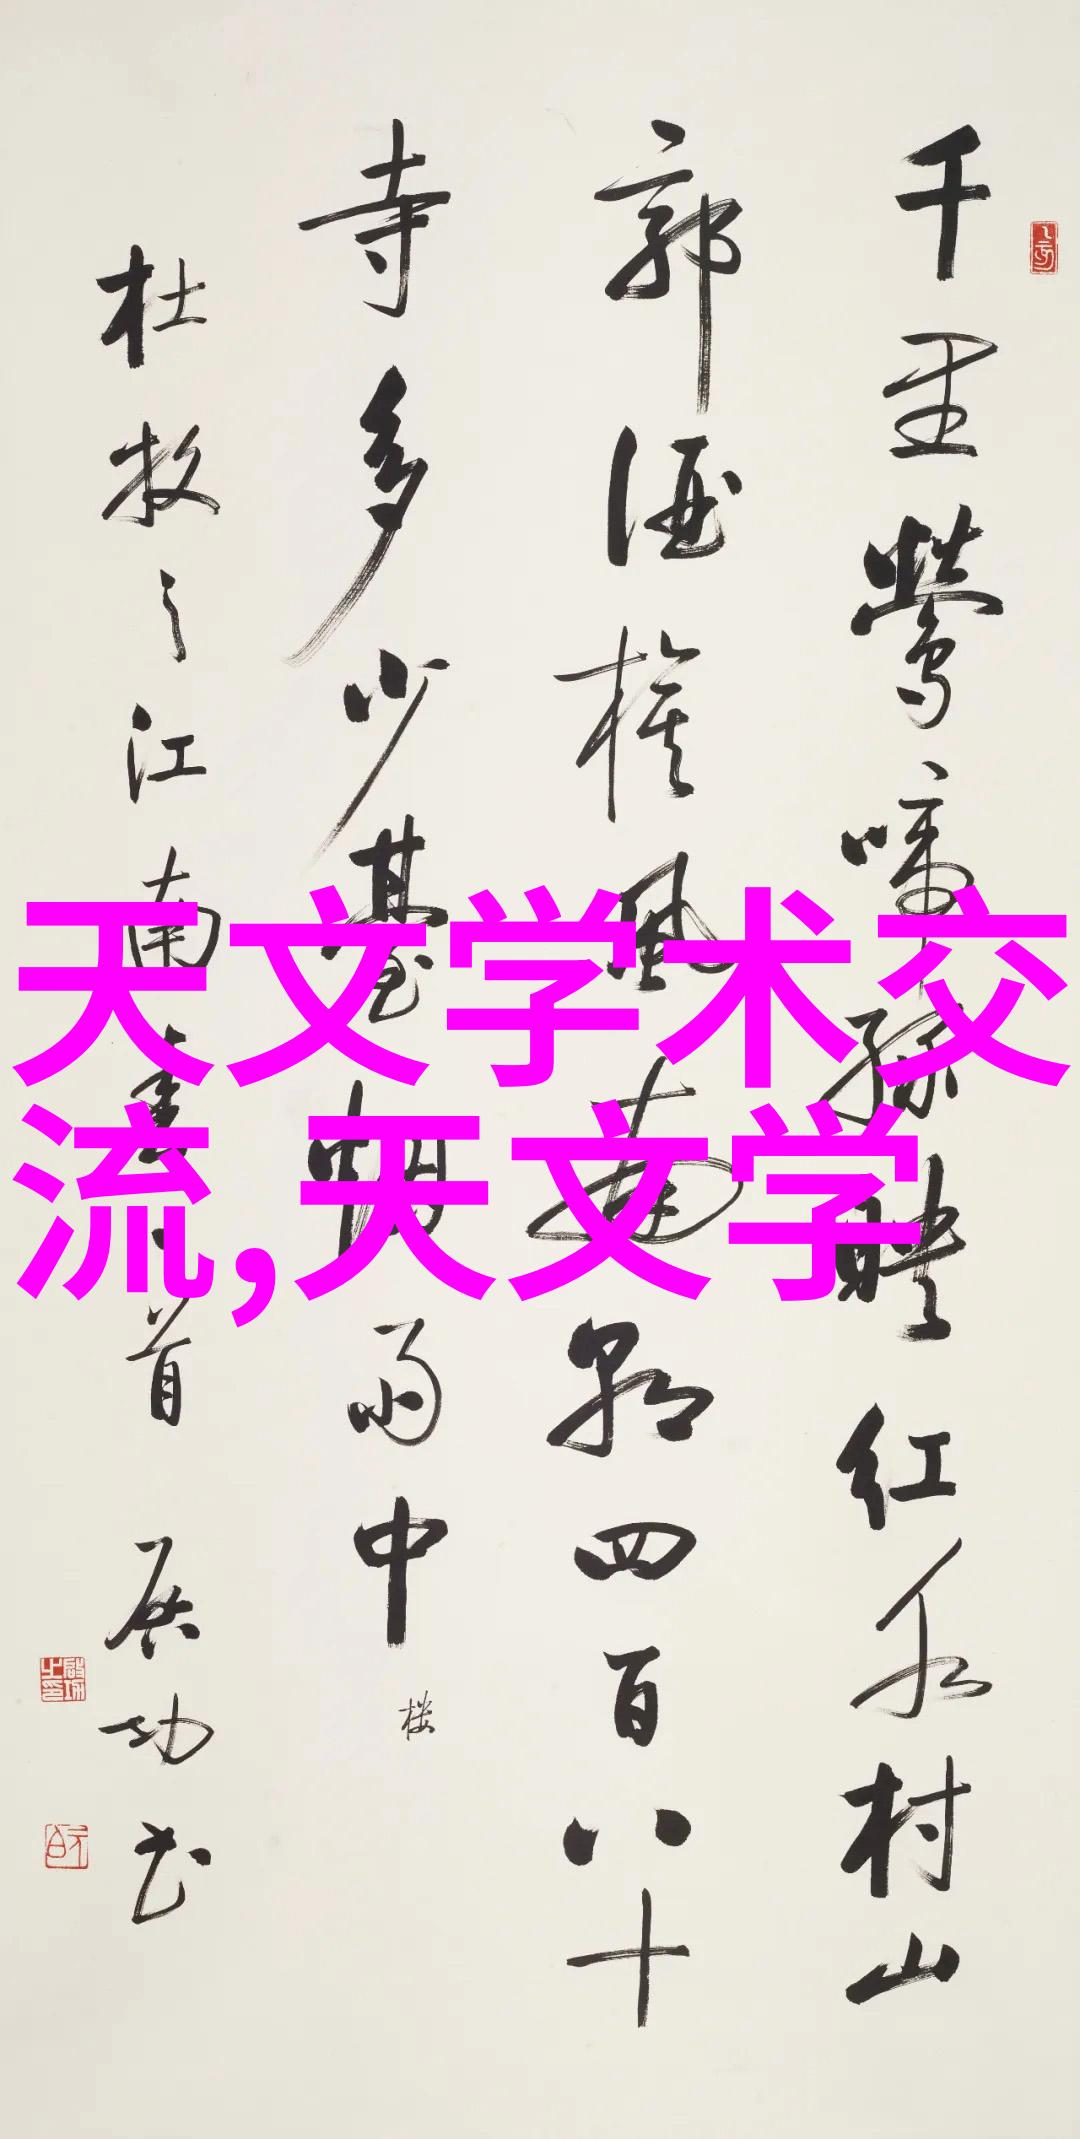 千里鶯啼綠映紅水村山
郭酒旗風南朝四百八十
寺多少臺烟雨中
楼
杜牧之江南春一首 启功书
天文学术交
流,天文学